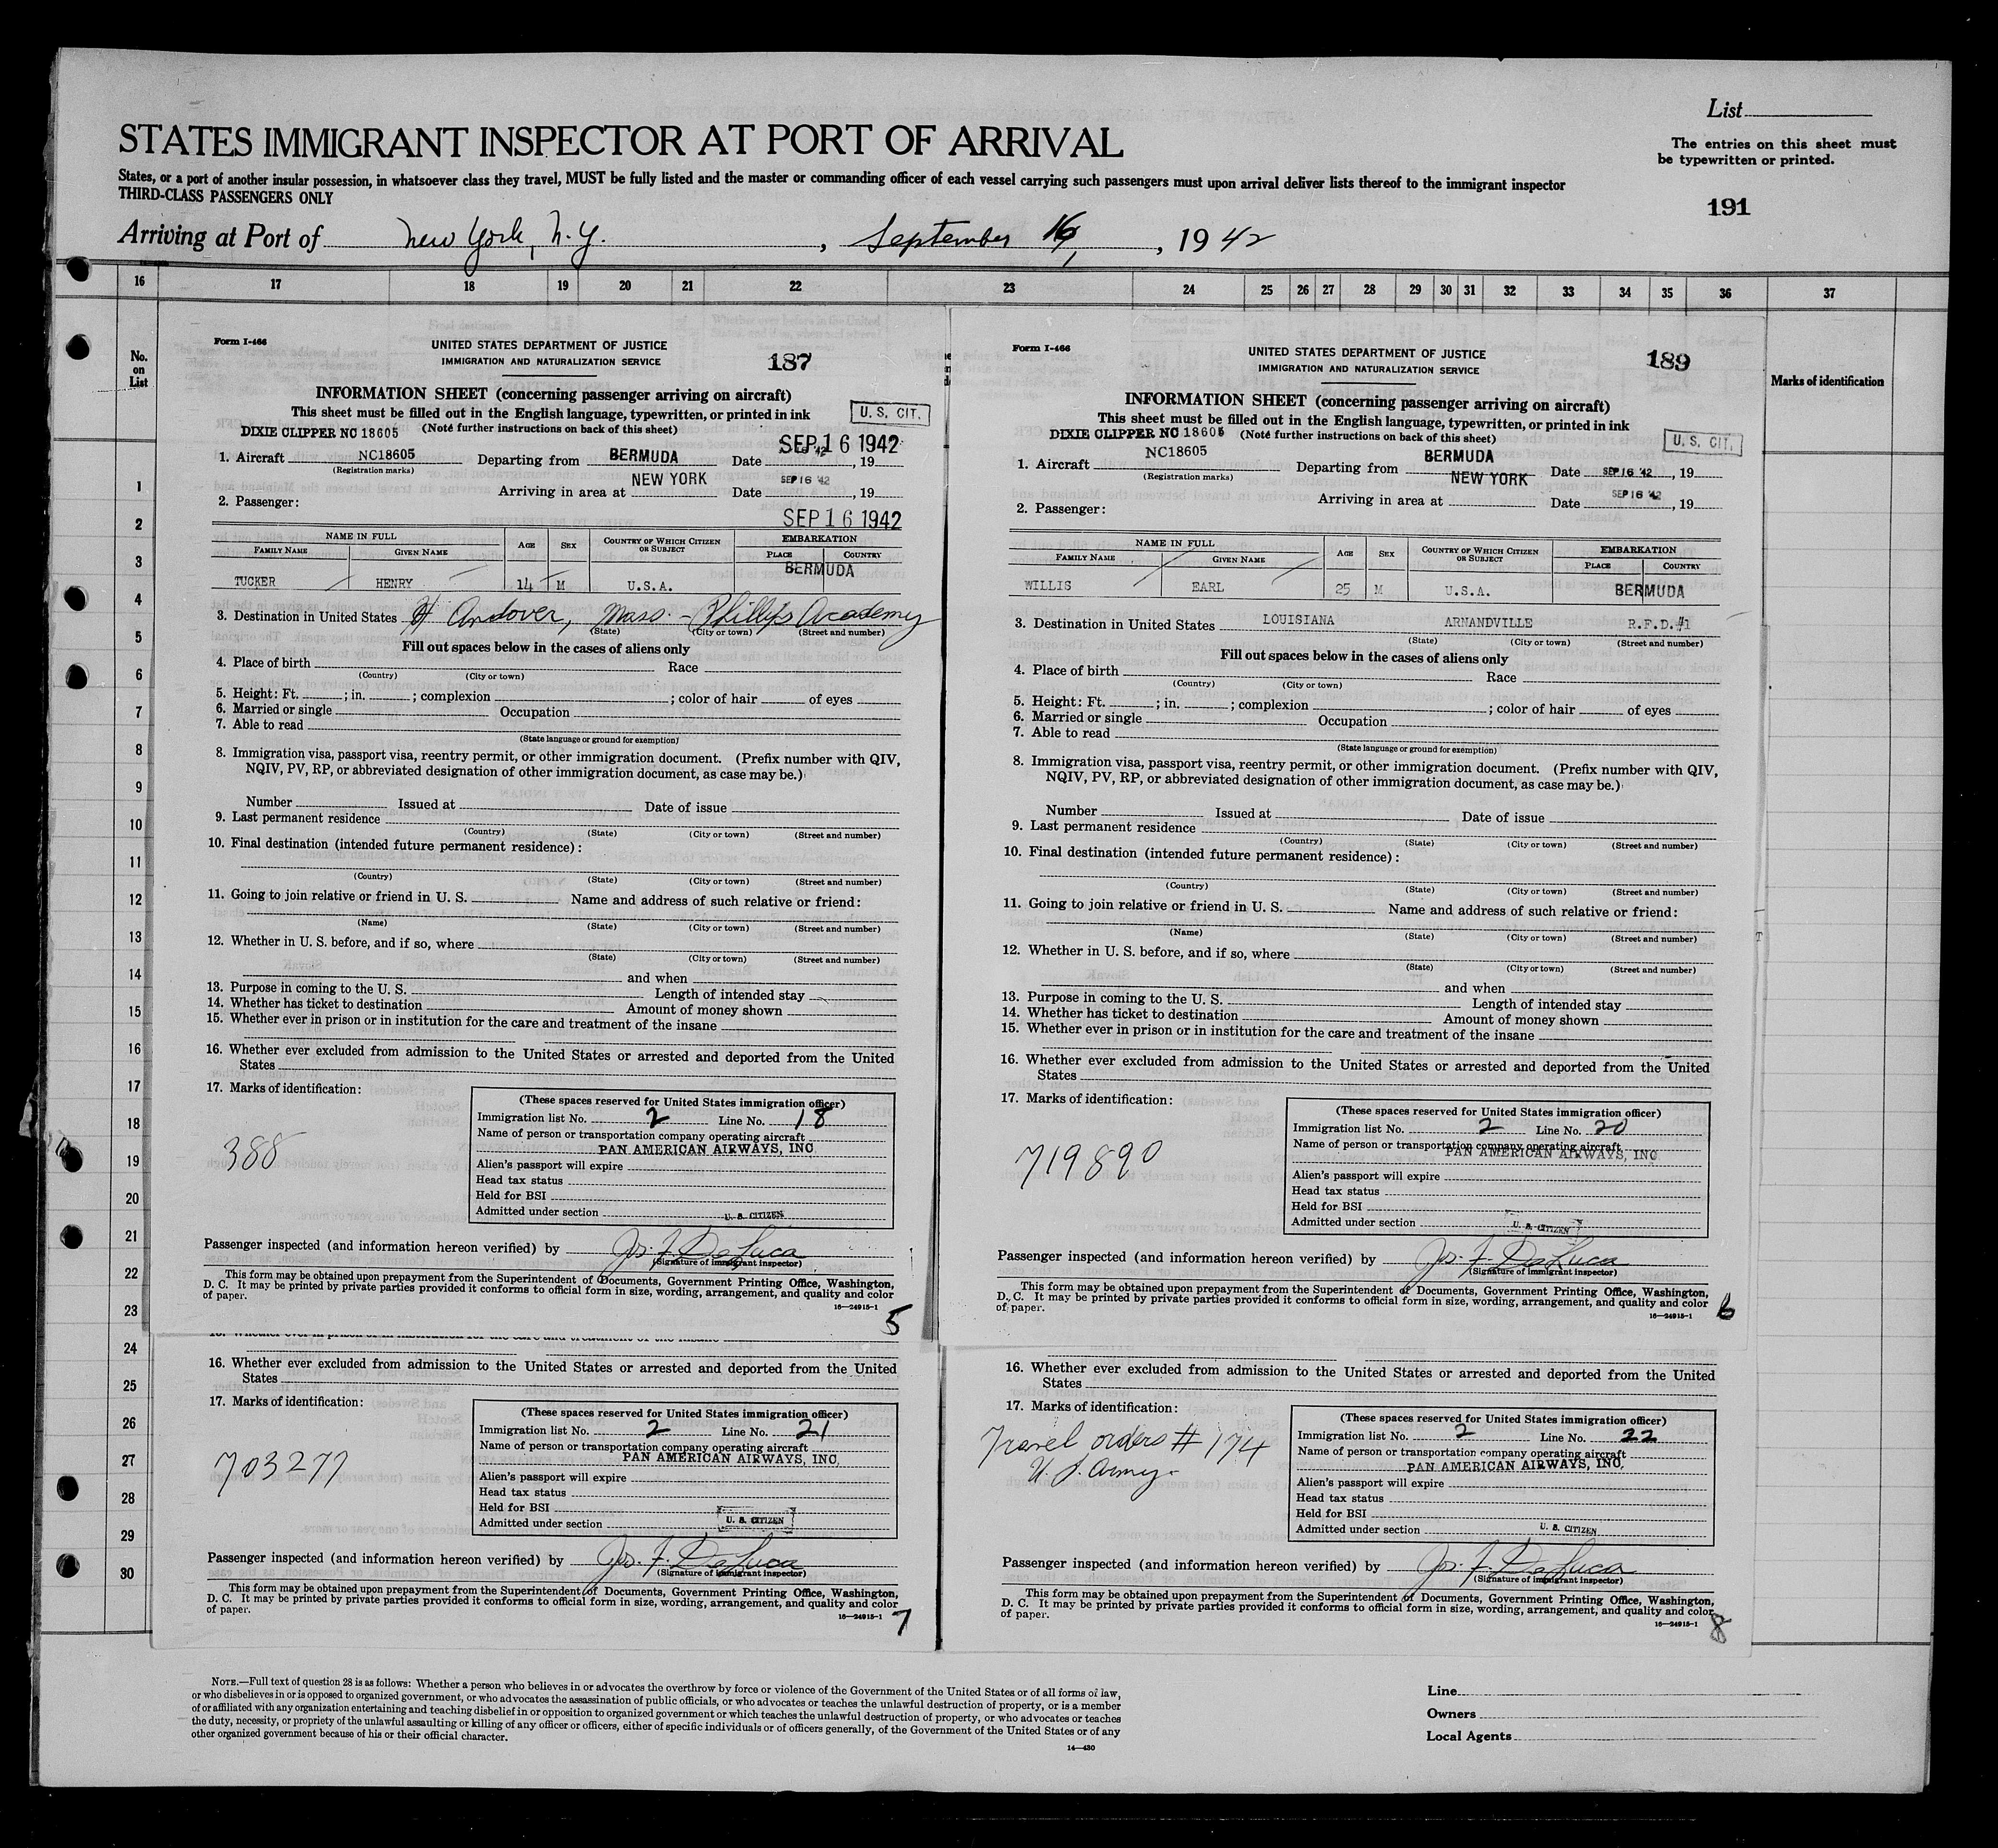 List
STATES IMMIGRANT INSPECTOR AT PORT OF ARRIVAL
The entries on this sheet must
be typewritten or printed.
States, or a port of another insular possession, in whatsoever class they travel, MUST be fully listed and the master or commanding officer of each vessel carrying such passengers must upon arrival deliver lists thereof to the immigrant inspector
THIRD-CLASS PASSENGERS ONLY
191
Arriving at Port of New York, N.Y., September 16, 1942
16 17 18 19 20 21 22 23 24 25 26 27 28 29 30 31 32 33 34 35 36 37
No.
on
List
Marks of identification
1
2
3
4
5
6
7
8
9
10
11
12
13
14
15
16
17
18
19
20
21
22
23
24
25
26
27
28
29
30
Form I-466
UNITED STATES DEPARTMENT OF JUSTICE
187
IMMIGRATION AND NATURALIZATION SERVICE
INFORMATION SHEET (concerning passenger arriving on aircraft)
This sheet must be filled out in the English language, typewritten, or printed in ink
U. S. CIT.
DIXIE CLIPPER NC 18605 (Note further instructions on back of this sheet)
SEP 16 1942
1. Aircraft NC18605 Departing from BERMUDA Date , 19
(Registration marks)
Arriving in area at NEW YORK Date SEP 16 '42 , 19
2. Passenger:
SEP 16 1942
NAME IN FULL AGE SEX COUNTRY OF WHICH CITIZEN OR SUBJECT EMBARKATION
FAMILY NAME GIVEN NAME PLACE COUNTRY
BERMUDA
TUCKER HENRY 14 M U.S.A.
3. Destination in United States Andover, Mass. - Phillips Academy
(State) (City or town) (Street and number)
Fill out spaces below in the cases of aliens only
4. Place of birth Race
(Country) (City or town)
5. Height: Ft. ; in. ; complexion ; color of hair of eyes
6. Married or single Occupation
7. Able to read
(State language or ground for exemption)
8. Immigration visa, passport visa, reentry permit, or other immigration document. (Prefix number with QIV,
NQIV, PV, RP, or abbreviated designation of other immigration document, as case may be.)
Number Issued at Date of issue
9. Last permanent residence
(Country) (State) (City or town) (Street and number)
10. Final destination (intended future permanent residence):
(Country) (State) (City or town) (Street and number)
11. Going to join relative or friend in U. S. Name and address of such relative or friend:
(Name) (State) (City or town) (Street and number)
12. Whether in U. S. before, and if so, where
(State) (City or town) (Street and number)
and when
13. Purpose in coming to the U. S. Length of intended stay
14. Whether has ticket to destination Amount of money shown
15. Whether ever in prison or in institution for the care and treatment of the insane
16. Whether ever excluded from admission to the United States or arrested and deported from the United
States
17. Marks of identification:
388
(These spaces reserved for United States immigration officer)
Immigration list No. 2 Line No. 18
Name of person or transportation company operating aircraft
PAN AMERICAN AIRWAYS, INC
Alien's passport will expire
Head tax status
Held for BSI
Admitted under section U. S. CITIZEN
Passenger inspected (and information hereon verified) by Jos. F. DeLuca
(Signature of immigrant inspector)
This form may be obtained upon prepayment from the Superintendent of Documents, Government Printing Office, Washington,
D. C. It may be printed by private parties provided it conforms to official form in size, wording, arrangement, and quality and color
of paper.
16—24915-1
5
Form I-466
UNITED STATES DEPARTMENT OF JUSTICE
189
IMMIGRATION AND NATURALIZATION SERVICE
INFORMATION SHEET (concerning passenger arriving on aircraft)
This sheet must be filled out in the English language, typewritten, or printed in ink
U. S. CIT.
DIXIE CLIPPER NC 18605 (Note further instructions on back of this sheet)
1. Aircraft NC18605 Departing from BERMUDA Date SEP 16 '42 , 19
(Registration marks)
Arriving in area at NEW YORK Date SEP 16 '42 , 19
2. Passenger:
NAME IN FULL AGE SEX COUNTRY OF WHICH CITIZEN OR SUBJECT EMBARKATION
FAMILY NAME GIVEN NAME PLACE COUNTRY
WILLIS EARL 25 M U.S.A. BERMUDA
3. Destination in United States LOUISIANA ARNANDVILLE R.F.D.#1
(State) (City or town) (Street and number)
Fill out spaces below in the cases of aliens only
4. Place of birth Race
(Country) (City or town)
5. Height: Ft. ; in. ; complexion ; color of hair of eyes
6. Married or single Occupation
7. Able to read
(State language or ground for exemption)
8. Immigration visa, passport visa, reentry permit, or other immigration document. (Prefix number with QIV,
NQIV, PV, RP, or abbreviated designation of other immigration document, as case may be.)
Number Issued at Date of issue
9. Last permanent residence
(Country) (State) (City or town) (Street and number)
10. Final destination (intended future permanent residence):
(Country) (State) (City or town) (Street and number)
11. Going to join relative or friend in U. S. Name and address of such relative or friend:
(Name) (State) (City or town) (Street and number)
12. Whether in U. S. before, and if so, where
(State) (City or town) (Street and number)
and when
13. Purpose in coming to the U. S. Length of intended stay
14. Whether has ticket to destination Amount of money shown
15. Whether ever in prison or in institution for the care and treatment of the insane
16. Whether ever excluded from admission to the United States or arrested and deported from the United
States
17. Marks of identification:
719890
(These spaces reserved for United States immigration officer)
Immigration list No. 2 Line No. 20
Name of person or transportation company operating aircraft
PAN AMERICAN AIRWAYS, INC
Alien's passport will expire
Head tax status
Held for BSI
Admitted under section U. S. CITIZEN
Passenger inspected (and information hereon verified) by Jos. F. DeLuca
(Signature of immigrant inspector)
This form may be obtained upon prepayment from the Superintendent of Documents, Government Printing Office, Washington,
D. C. It may be printed by private parties provided it conforms to official form in size, wording, arrangement, and quality and color
of paper.
16—24915-1
6
16. Whether ever excluded from admission to the United States or arrested and deported from the United
States
17. Marks of identification:
703277
(These spaces reserved for United States immigration officer)
Immigration list No. 2 Line No. 21
Name of person or transportation company operating aircraft
PAN AMERICAN AIRWAYS, INC.
Alien's passport will expire
Head tax status
Held for BSI
Admitted under section U. S. CITIZEN
Passenger inspected (and information hereon verified) by Jos. F. DeLuca
(Signature of immigrant inspector)
This form may be obtained upon prepayment from the Superintendent of Documents, Government Printing Office, Washington,
D. C. It may be printed by private parties provided it conforms to official form in size, wording, arrangement, and quality and color
of paper.
16—24915-1
7
16. Whether ever excluded from admission to the United States or arrested and deported from the United
States
17. Marks of identification:
Travel orders # 174
U. S. Army
(These spaces reserved for United States immigration officer)
Immigration list No. 2 Line No. 22
Name of person or transportation company operating aircraft
PAN AMERICAN AIRWAYS, INC.
Alien's passport will expire
Head tax status
Held for BSI
Admitted under section U. S. CITIZEN
Passenger inspected (and information hereon verified) by Jos. F. DeLuca
(Signature of immigrant inspector)
This form may be obtained upon prepayment from the Superintendent of Documents, Government Printing Office, Washington,
D. C. It may be printed by private parties provided it conforms to official form in size, wording, arrangement, and quality and color
of paper.
16—24915-1
8
NOTE.—Full text of question 28 is as follows: Whether a person who believes in or advocates the overthrow by force or violence of the Government of the United States or of all forms of law,
or who disbelieves in or is opposed to organized government, or who advocates the assassination of public officials, or who advocates or teaches the unlawful destruction of property, or is a member
of or affiliated with any organization entertaining and teaching disbelief in or opposition to organized government or which teaches the unlawful destruction of property, or who advocates or teaches
the duty, necessity, or propriety of the unlawful assaulting or killing of any officer or officers, either of specific individuals or of officers generally, of the Government of the United States or of any
other organized government because of his or their official character.
14—430
Line
Owners
Local Agents